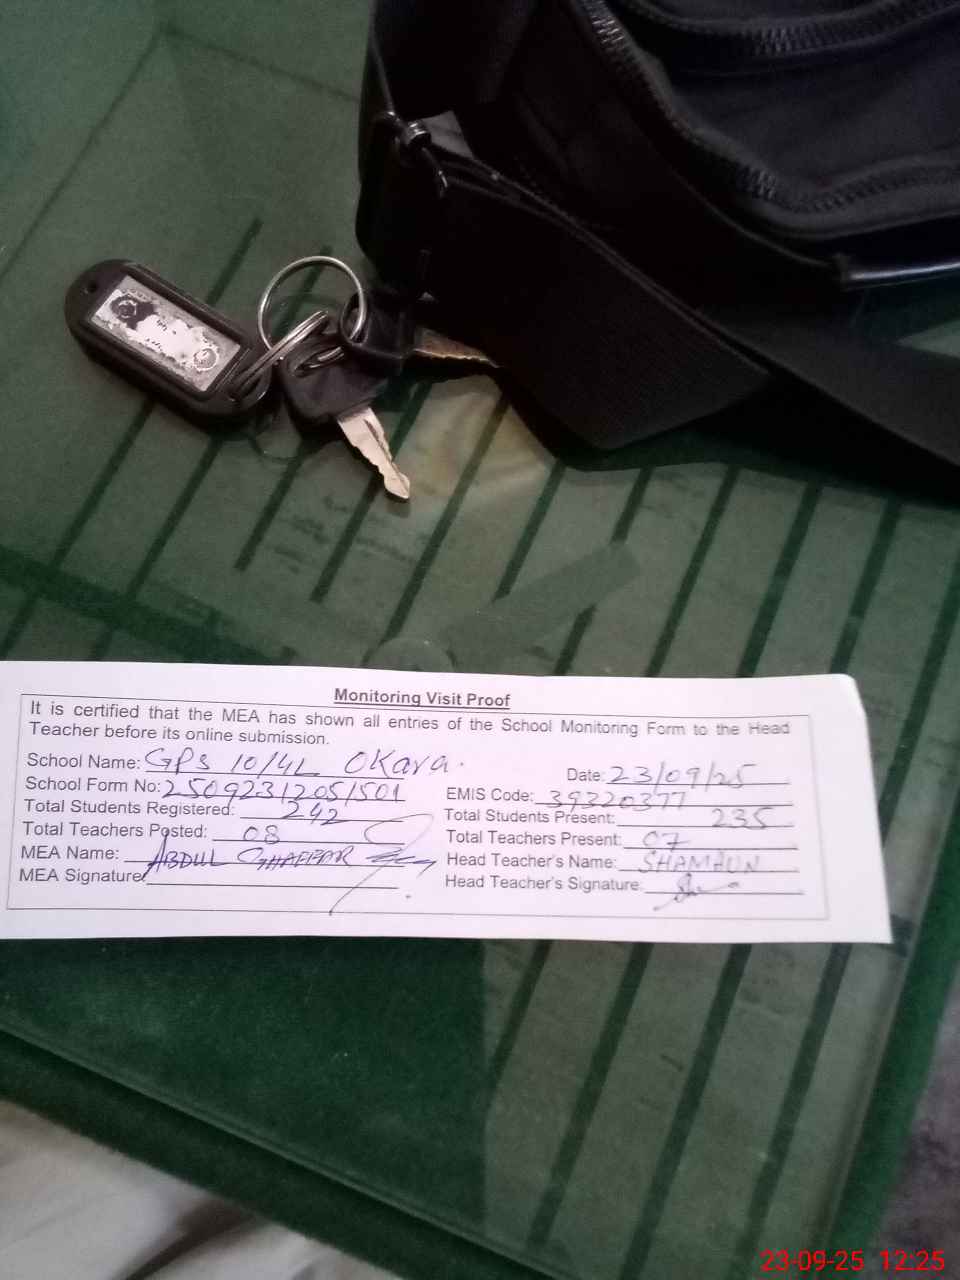 Monitoring Visit Proof
It is certified that the MEA has shown all entries of the School Monitoring Form to the Head
Teacher before its online submission.
School Name: GPS 10/4L Okara.
Date: 23/09/25
School Form No: 25092312051501
EMIS Code: 39320377
Total Students Registered: 242
Total Students Present: 235
Total Teachers Posted: 08
Total Teachers Present: 07
MEA Name: ABDUL GHAFFAR
Head Teacher's Name: SHAMAUN
MEA Signature
Head Teacher's Signature:
23-09-25 12:25